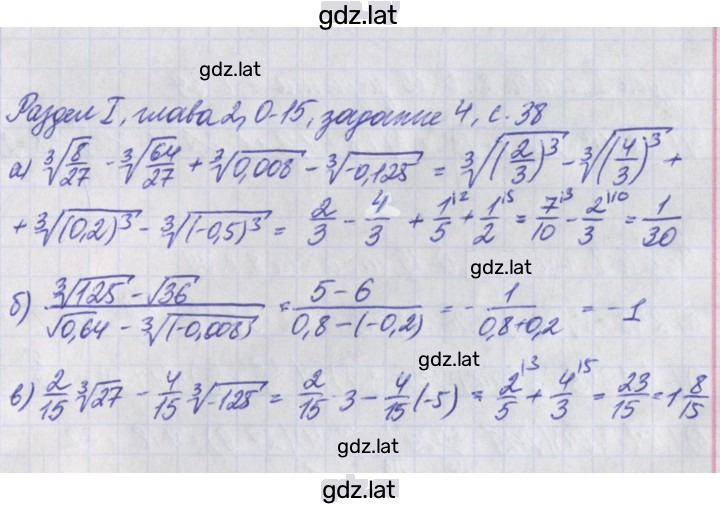 gdz.lat
gdz.lat
Раздел I, глава 2, О-15, задание 4, с. 38
а) ∛(8/27) - ∛(64/27) + ∛(0,008) - ∛(-0,125) = ∛((2/3)^3) - ∛((4/3)^3) +
+ ∛((0,2)^3) - ∛((-0,5)^3) = 2/3 - 4/3 + 1/5^(12 + 1/2^(15 = 7/10^(13 - 2/3^(110 = 1/30
gdz.lat
б) (∛125 - √36)/(√0,64 - ∛(-0,008)) = (5 - 6)/(0,8 - (-0,2)) = - 1/(0,8+0,2) = - 1
gdz.lat
в) 2/15 ∛27 - 4/15 ∛-125 = 2/15 · 3 - 4/15 (-5) = 2/5^(13 + 4/3^(15 = 23/15 = 1 8/15
gdz.lat
gdz.lat